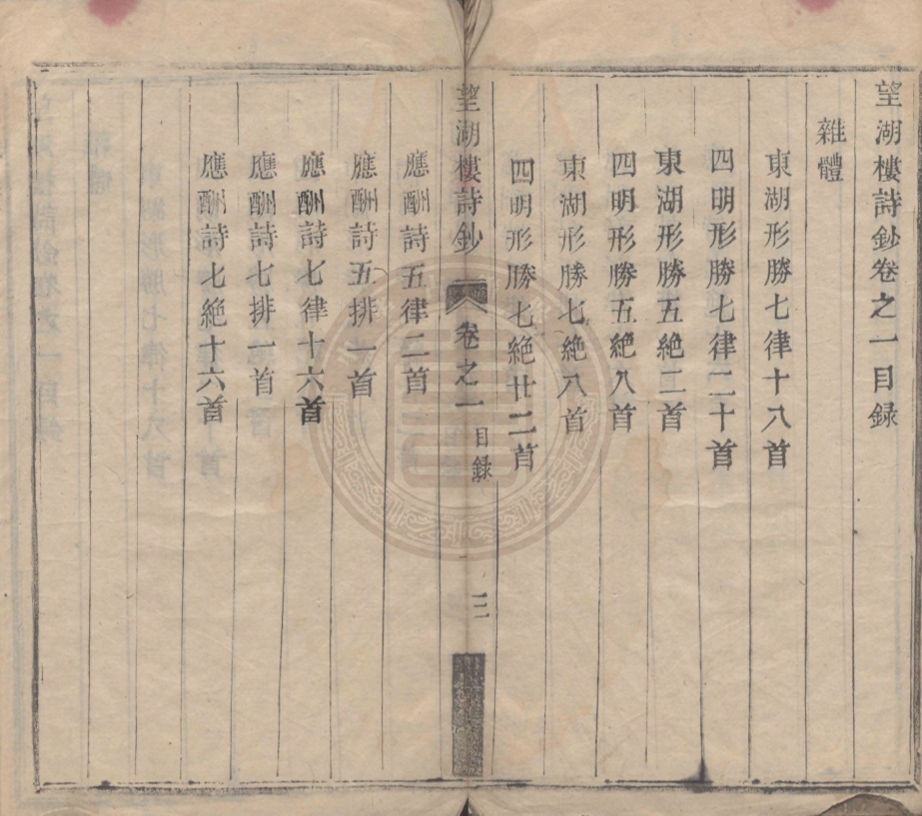 望湖樓詩鈔卷之一目録
雜體
東湖形勝七律十八首
四明形勝七律二十首
東湖形勝五絶二首
四明形勝五絶八首
東湖形勝七絶八首
四明形勝七絶廿二首
望湖樓詩鈔 卷之一 目録 三
應酬詩五律二首
應酬詩五排一首
應酬詩七律十六首
應酬詩七排一首
應酬詩七絶十六首